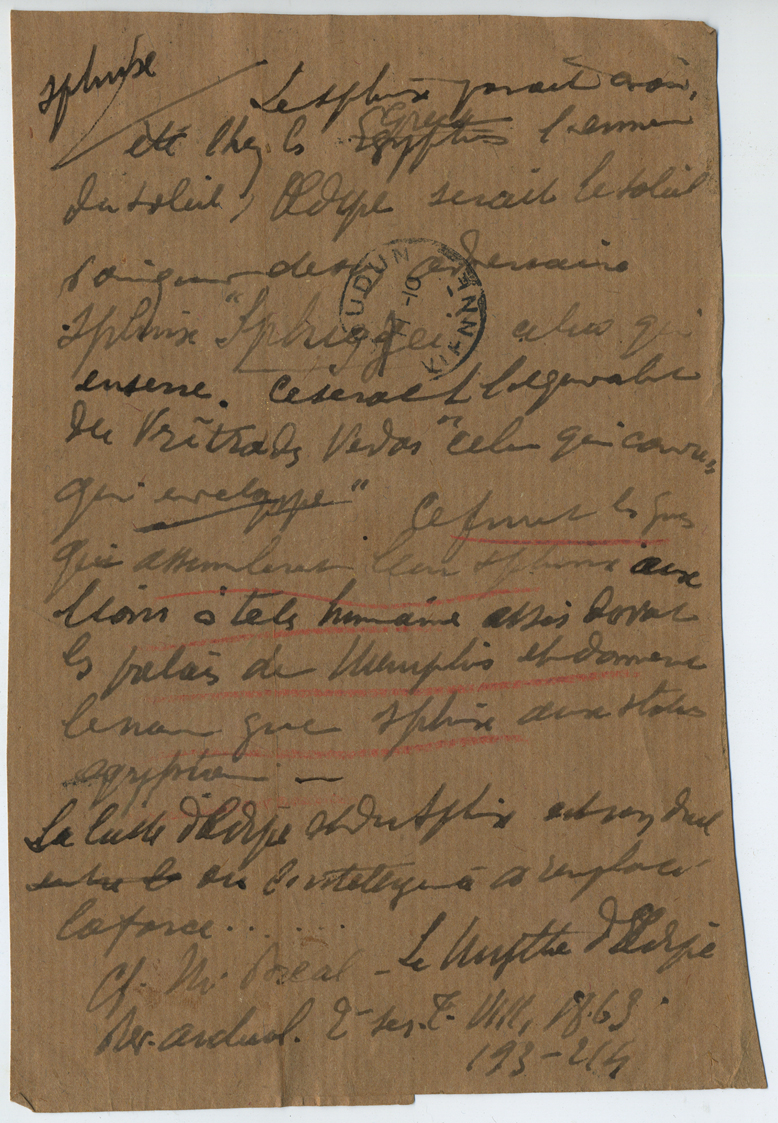 sphinx
Le sphinx paraît avoir
été chez les Egyptiens Grecs l'ennemi
du soleil, Œdipe serait le soleil
vainqueur de son adversaire
sphinx "Sphiggein" celui qui
enserre. Ce serait l'équivalent
du Vritra des Vedas "celui qui couvre,
qui enveloppe" Ce furent les Grecs
qui assimilèrent leur sphinx aux
lions à tête humaine assis devant
les palais de Memphis et donnèrent
le nom grec sphinx aux statues
egyptien —
La lutte d'Œdipe et du Sphinx est un duel
entre le où l'intelligence a remplacé
la force......
Cf. M. Bréal - Le Mythe d'Œdipe
Rev. archéol. 2e ser. T. VIII, 1863.
193-214
UDUN
VIENNE
-10